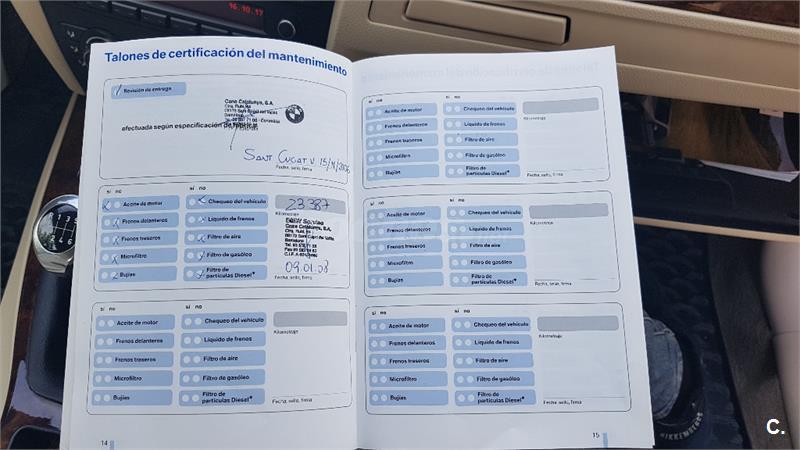 16.10.17
Talones de certificación del mantenimiento
Revisión de entrega
Cano Catalunya, S.A.
efectuada según especificación de fábrica
SANT CUGAT V.
Fecha, sello, firma
sí no sí no
Aceite de motor Chequeo del vehículo
Frenos delanteros Líquido de frenos
Frenos traseros Filtro de aire
Microfiltro Filtro de gasóleo
Bujías Filtro de
partículas Diesel*
23 387
Kilometraje
BMW Service
Cano Catalunya, S.A.
09.01.08
Fecha, sello, firma
sí no sí no
Aceite de motor Chequeo del vehículo
Frenos delanteros Líquido de frenos
Frenos traseros Filtro de aire
Microfiltro Filtro de gasóleo
Bujías Filtro de
partículas Diesel*
Kilometraje
Fecha, sello, firma
14
sí no sí no
Aceite de motor Chequeo del vehículo
Frenos delanteros Líquido de frenos
Frenos traseros Filtro de aire
Microfiltro Filtro de gasóleo
Bujías Filtro de
partículas Diesel*
Kilometraje
Fecha, sello, firma
sí no sí no
Aceite de motor Chequeo del vehículo
Frenos delanteros Líquido de frenos
Frenos traseros Filtro de aire
Microfiltro Filtro de gasóleo
Bujías Filtro de
partículas Diesel*
Kilometraje
Fecha, sello, firma
sí no sí no
Aceite de motor Chequeo del vehículo
Frenos delanteros Líquido de frenos
Frenos traseros Filtro de aire
Microfiltro Filtro de gasóleo
Bujías Filtro de
partículas Diesel*
Kilometraje
Fecha, sello, firma
15
C.